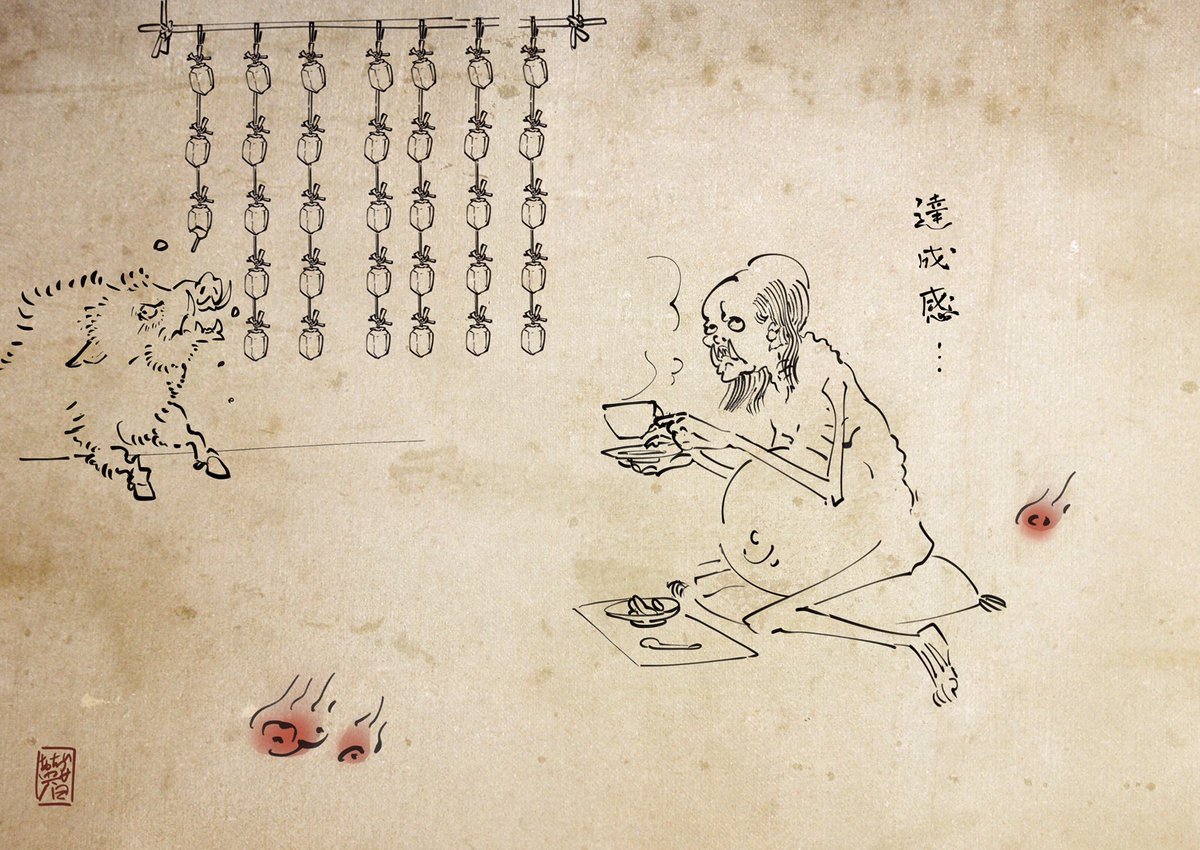 達成感…